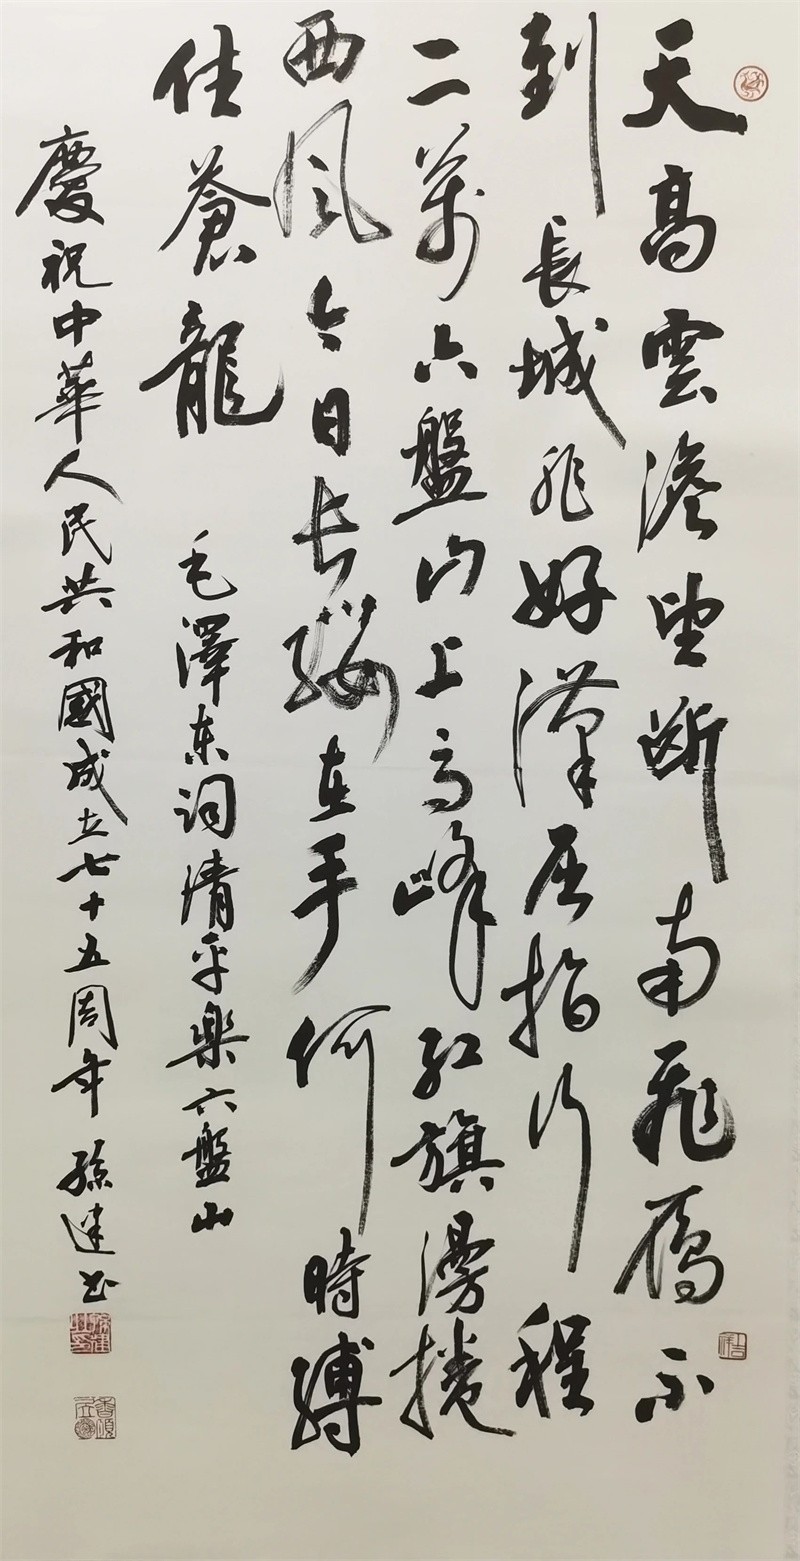 天高雲澹望斷南飛鴈不
到長城非好漢屈指行程
二萬六盤山上高峰紅旗漫捲
西風今日长纓在手何時縛
住蒼龍 毛澤东詞清平樂六盤山
慶祝中華人民共和國成立七十五周年 孫书
吉祥